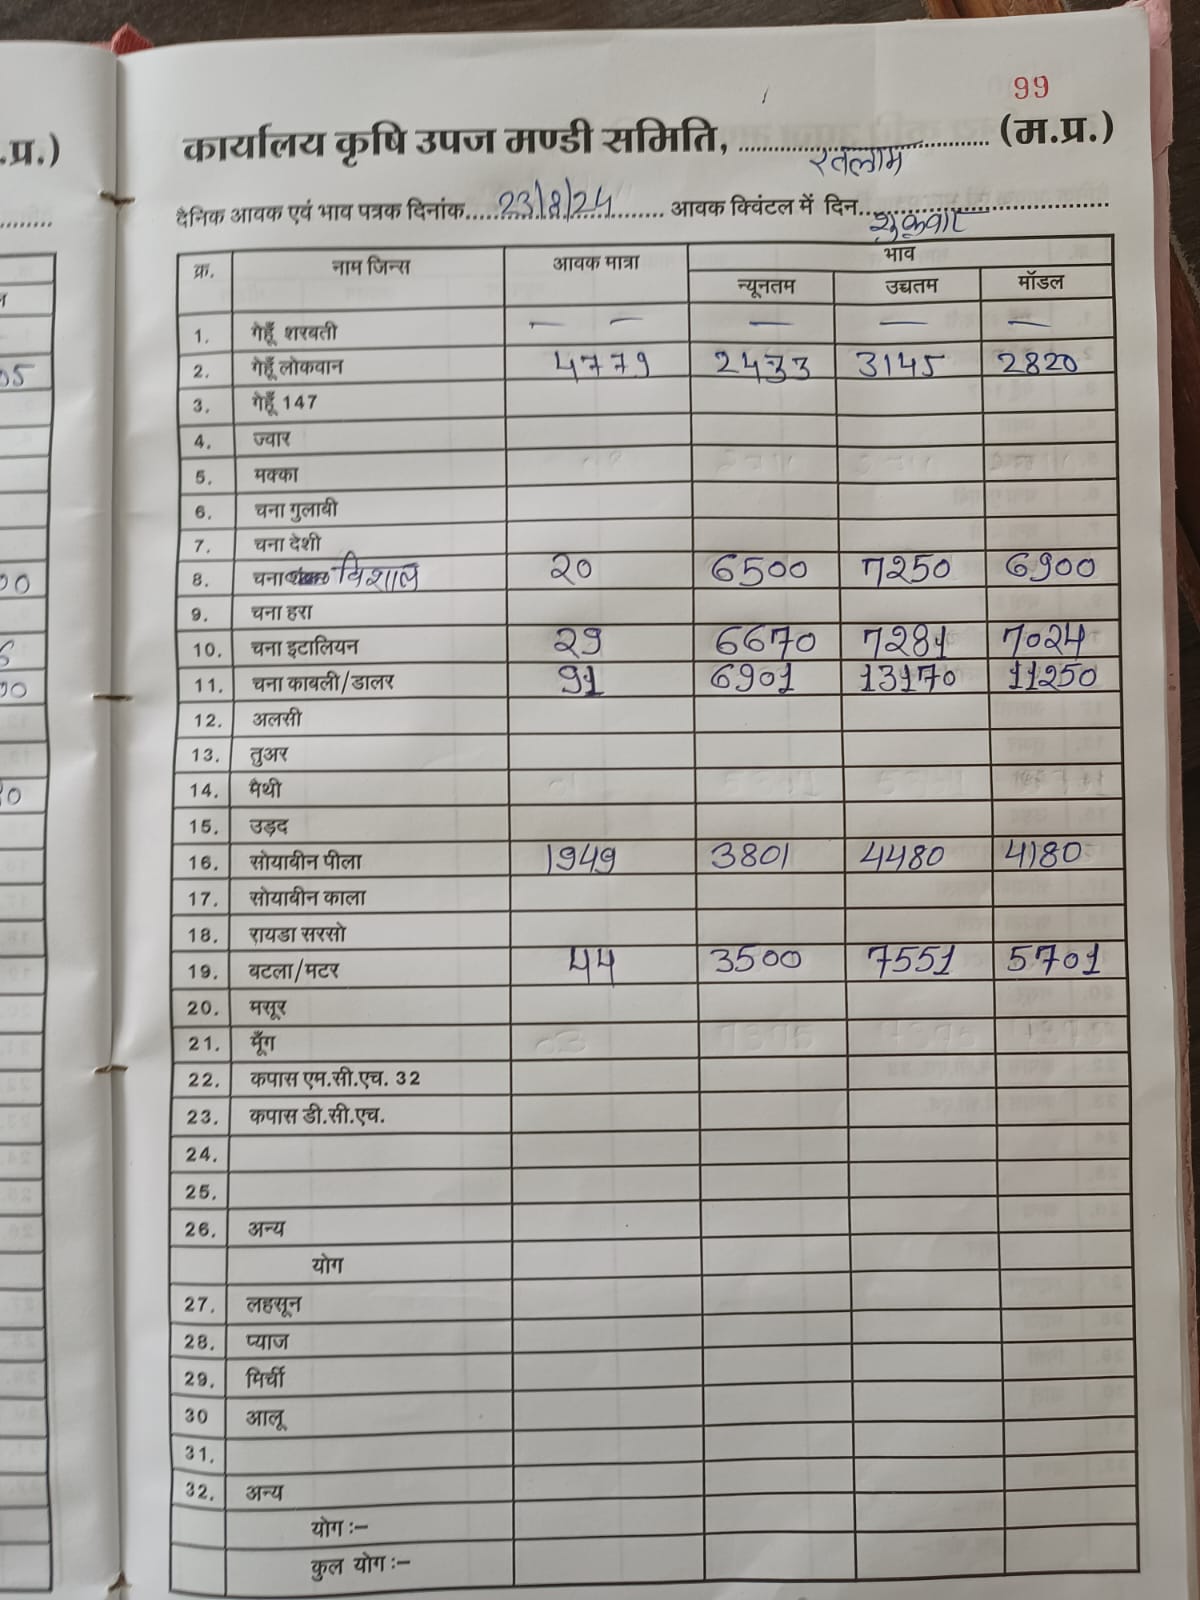 .प्र.)
99
कार्यालय कृषि उपज मण्डी समिति, रतलाम (म.प्र.)
दैनिक आवक एवं भाव पत्रक दिनांक 23/8/24 आवक क्विंटल में दिन शुक्रवार
क्र. नाम जिन्स आवक मात्रा भाव
न्यूनतम उच्चतम मॉडल
1. गेहूँ शरबती — — — — —
2. गेहूँ लोकवान 4779 2433 3145 2820
3. गेहूँ 147
4. ज्वार
5. मक्का
6. चना गुलाबी
7. चना देशी
8. चना विशाल 20 6500 7250 6900
9. चना हरा
10. चना इटालियन 29 6670 7281 7024
11. चना काबली/डालर 91 6901 13170 11250
12. अलसी
13. तुअर
14. मैथी
15. उड़द
16. सोयाबीन पीला 1949 3801 4480 4180
17. सोयाबीन काला
18. रायडा सरसो
19. बटला/मटर 44 3500 7551 5701
20. मसूर
21. मूँग
22. कपास एम.सी.एच. 32
23. कपास डी.सी.एच.
24.
25.
26. अन्य
योग
27. लहसून
28. प्याज
29. मिर्ची
30 आलू
31.
32. अन्य
योग :–
कुल योग :–